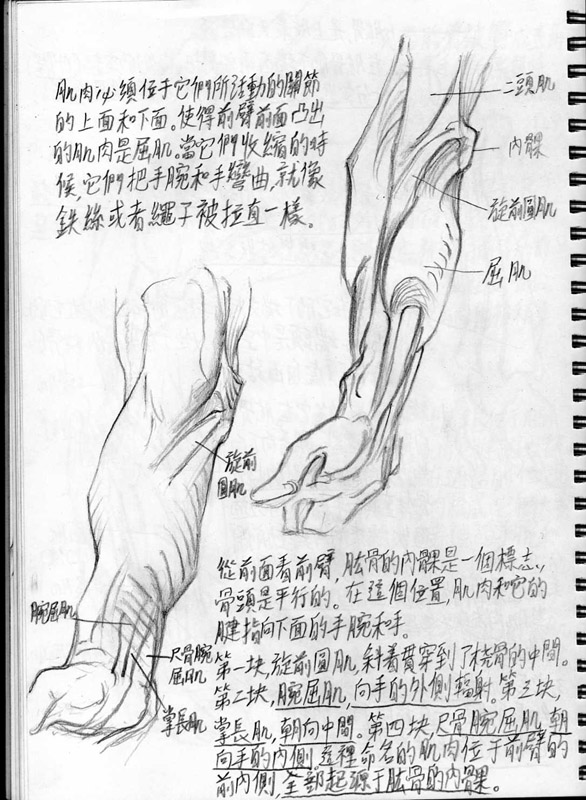 肌肉必須位于它們所活動的關節
的上面和下面。使得前臂前面凸出
的肌肉是屈肌。當它們收縮的時
候,它們把手腕和手彎曲,就像
鉄絲或者繩子被拉直一樣。
二頭肌
內髁
旋前圓肌
屈肌
旋前
圓肌
腕屈肌
尺骨腕
屈肌
掌長肌
從前面看前臂,肱骨的內髁是一個標志,
骨頭是平行的。在這個位置,肌肉和它的
腱指向下面的手腕和手。
第一块,旋前圓肌,斜着貫穿到了桡骨的中間。
第二块,腕屈肌,向手的外側輻射。第三块,
掌長肌,朝向中間。第四块,尺骨腕屈肌,朝
向手的內側。這裡命名的肌肉位于前臂的
前內側,全部起源于肱骨的內髁。